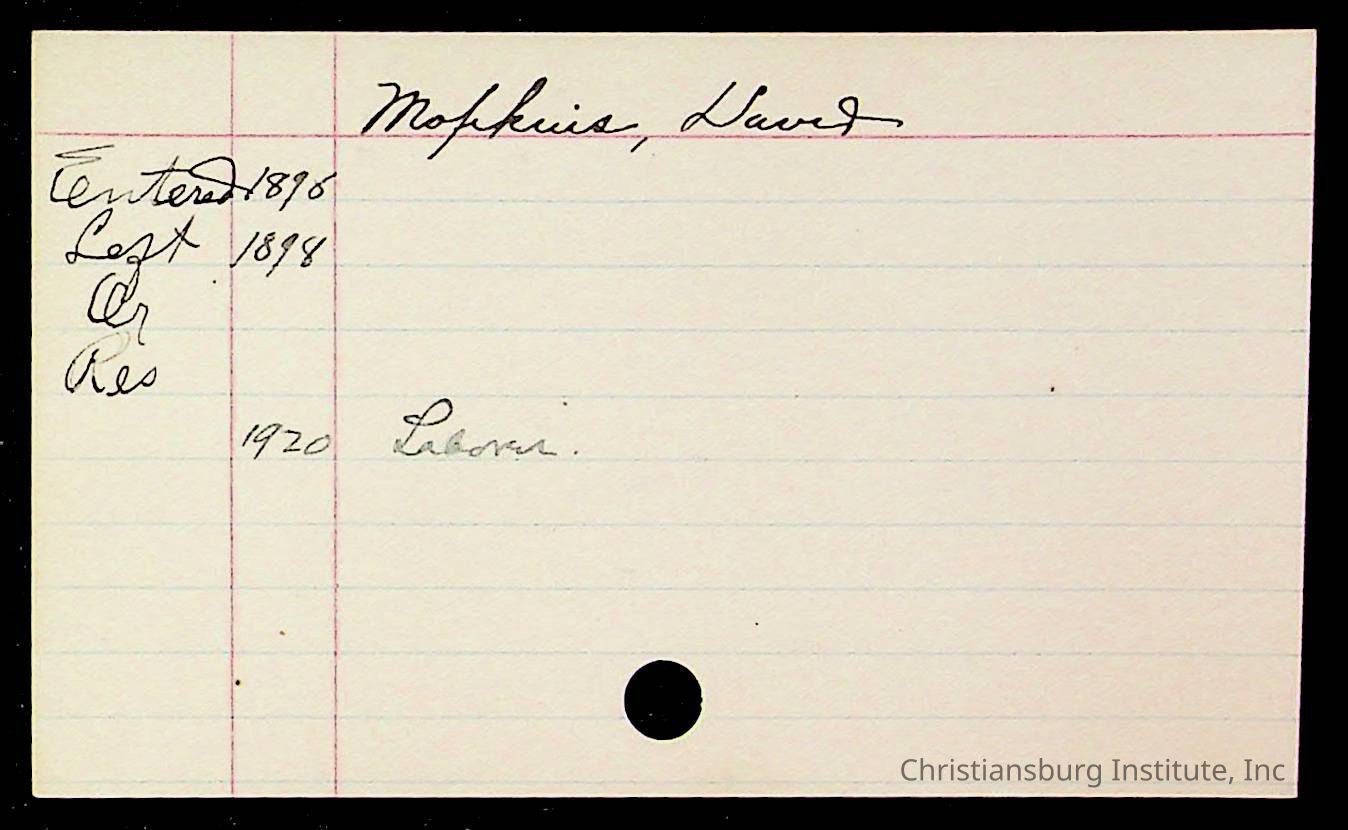 Mopkins, David
Entered 1896
Left 1898
Cr
Res
1920 Laborer.
Christiansburg Institute, Inc